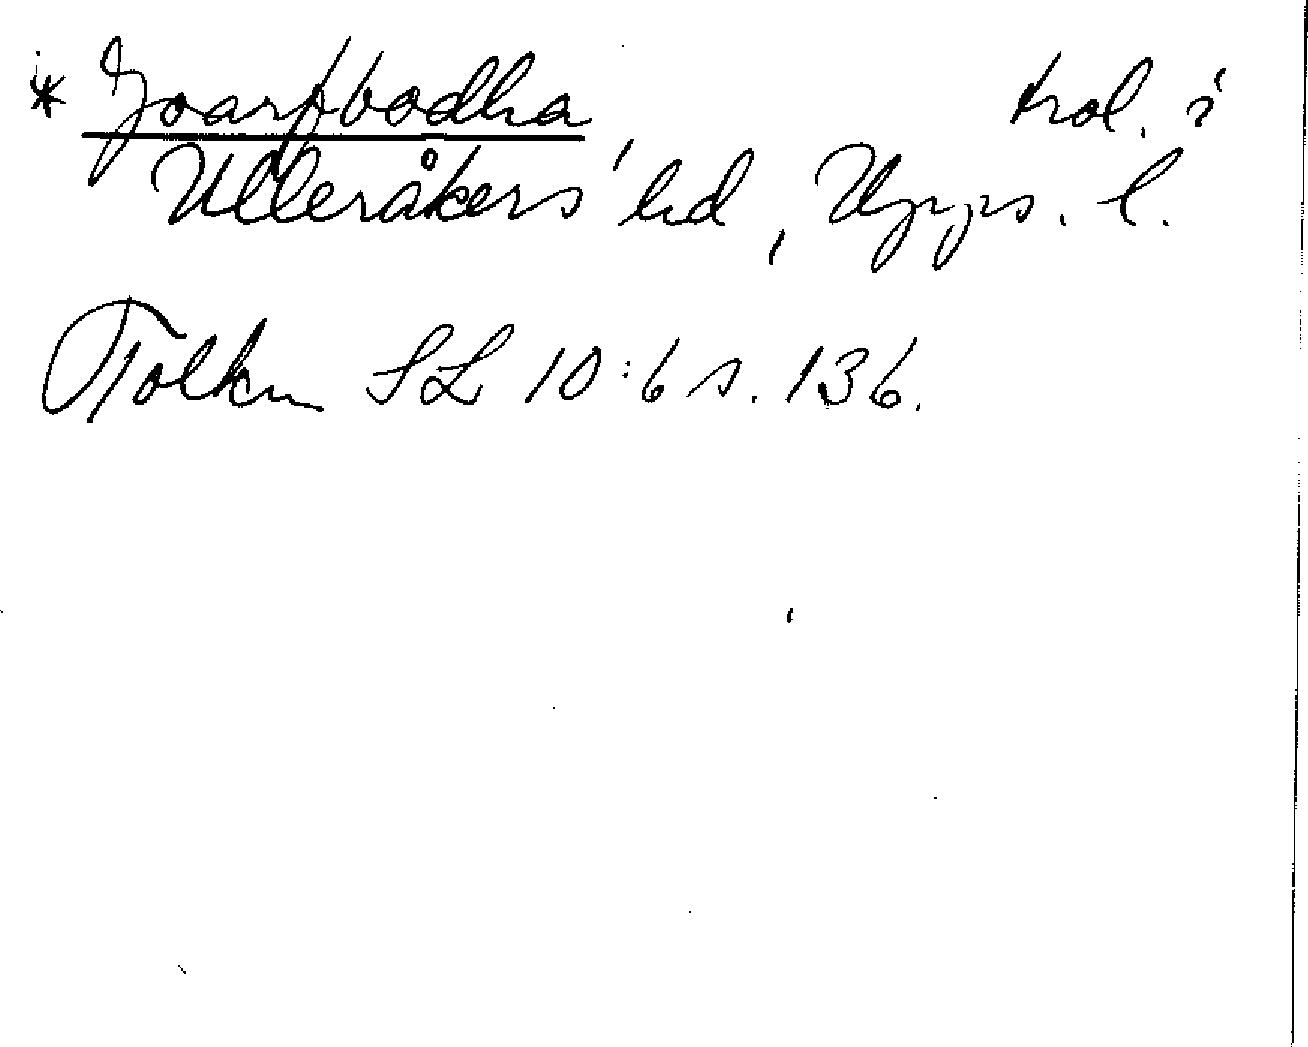 * Joarþbodha, trol. i
Ulleråkers hd, Upps. l.
Tolkn SL 10:6 s. 136.